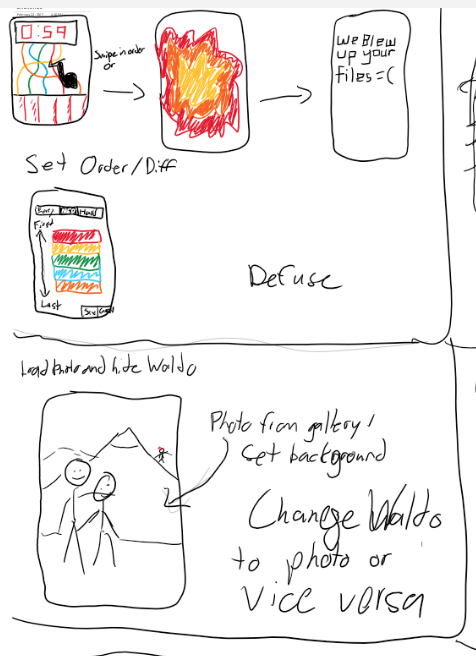 0:59
Swipe in order
or
We Blew
up your
files =(
Set Order/Diff
Hard
First
Last
Defuse
Load Photo and hide Waldo
Photo from gallery/
Set background
Change Waldo
to photo or
Vice versa